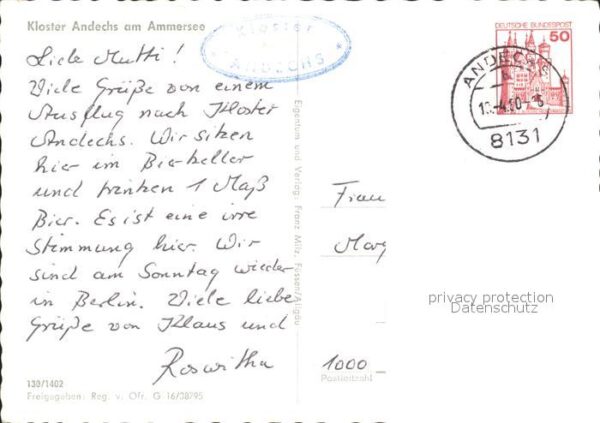 Kloster Andechs am Ammersee
Kloster
* ANDECHS *
DEUTSCHE BUNDESPOST
50
ANDECHS
8131
Liebe Mutti!
Viele Grüße von einem
Ausflug nach Kloster
Andechs. Wir sitzen
hier im Bierkeller
und trinken 1 Maß
Bier. Es ist eine irre
Stimmung hier. Wir
sind am Sonntag wieder
in Berlin. Viele liebe
Grüße von Klaus und
Roswitha
Eigentum und Verlag: Franz Milz, Füssen/Allgäu
Frau
Marg
privacy protection
Datenschutz
1000
Postleitzahl
130/1402
Freigegeben: Reg. v. Ofr. G 16/38795